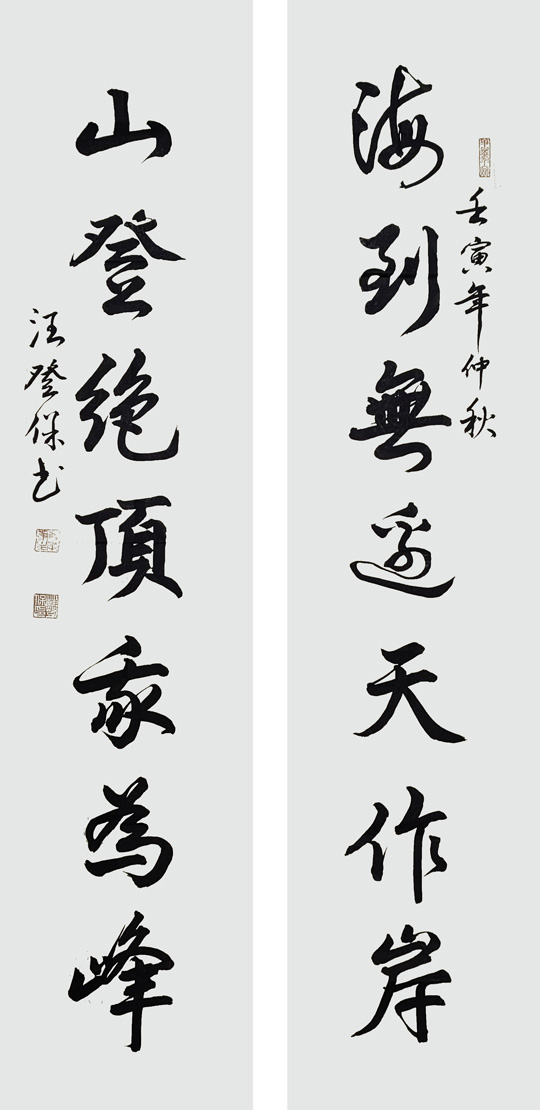 海到無邊天作岸
壬寅年仲秋
山登绝頂我為峰
汪登保书